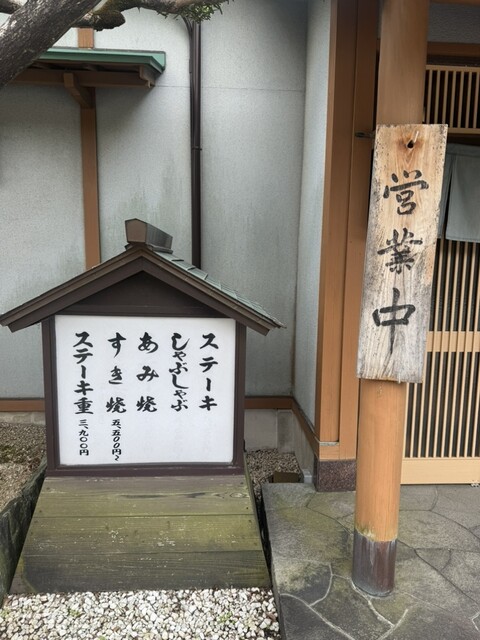 営業中
ステーキ
しゃぶしゃぶ
あみ焼
すき焼 五、五〇〇円〜
ステーキ重 三、九〇〇円